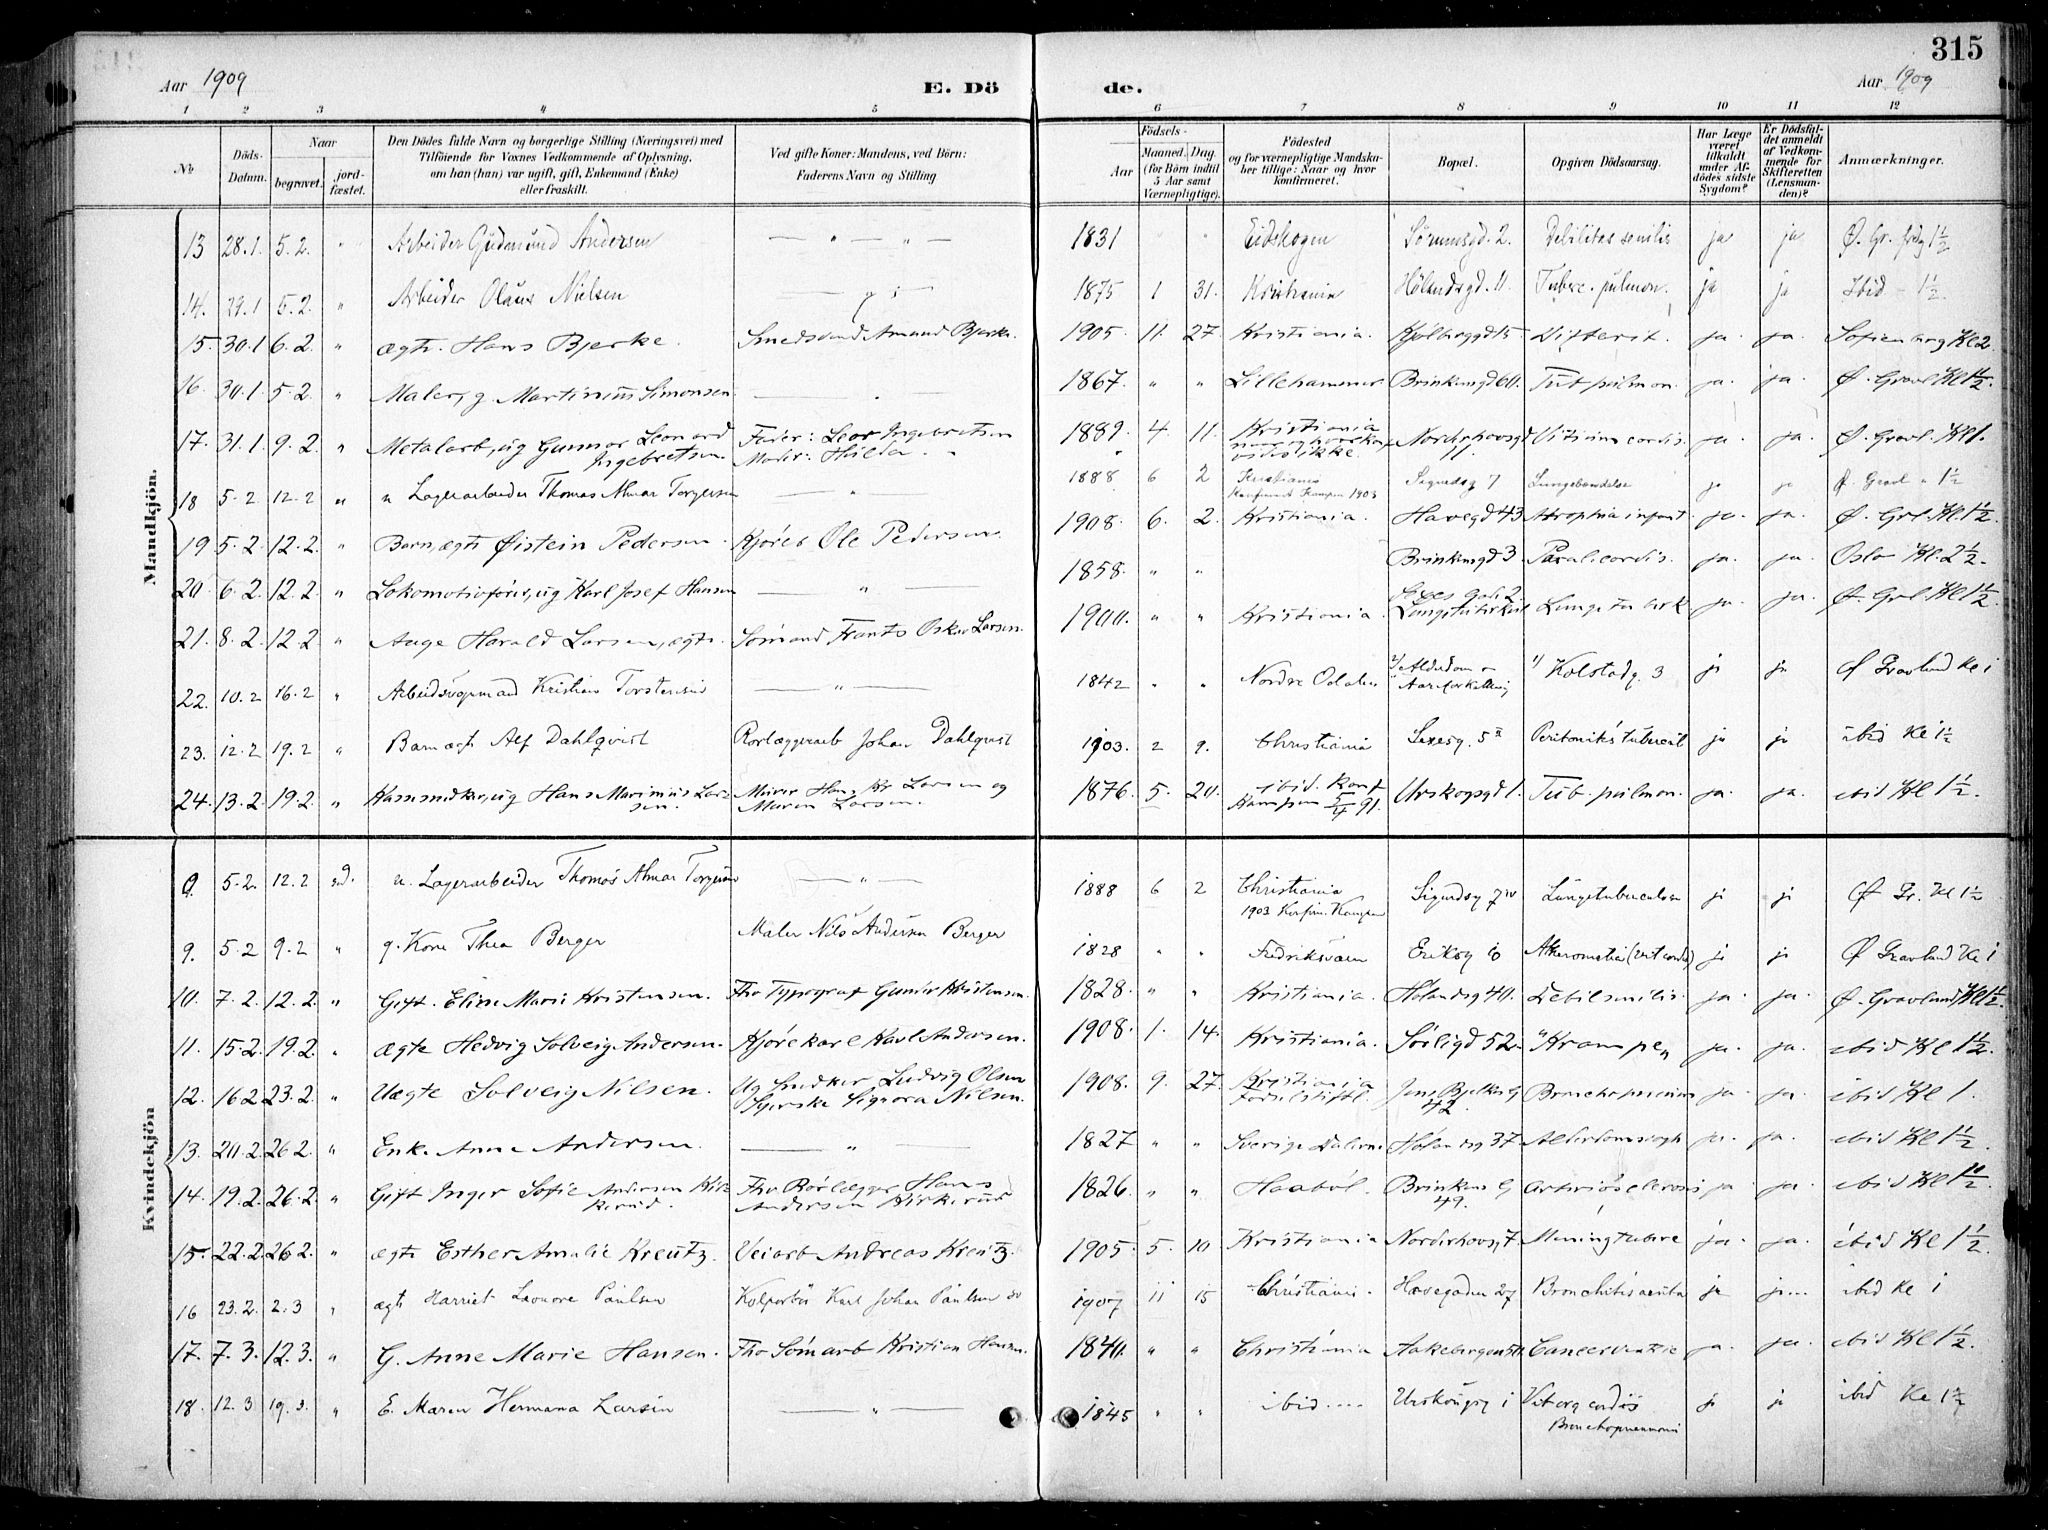 315
Aar 1909 E. Dö de. Aar 1909
1 2 3 4 5 6 7 8 9 10 11 12
No
Döds-Datum.
Naar
begravet.
jord-fæstet.
Den Dödes fulde Navn og borgerlige Stilling (Næringsvei) med
Tilföiende for Voxnes Vedkommende af Oplysning,
om han (hun) var ugift, gift, Enkemand (Enke)
eller fraskilt.
Ved gifte Koner: Mandens, ved Börn:
Faderens Navn og Stilling
Födsels-
Aar
Maaned. Dag.
(for Börn indtil
5 Aar samt
Værnepligtige).
Födested
og for værnepligtige Mandska-
ber tillige: Naar og hvor
konfirmeret.
Bopæl.
Opgiven Dödsaarsag.
Har Læge
været
tilkaldt
under Af-
dödes sidste
Sygdom?
Er Dödsfal-
det anmeldt
af Vedkom-
mende for
Skifteretten
(Lensman-
den)?
Anmærkninger.
Mandkjön.
13 28.1. 5.2. " Arbeider Gudmund Andersen — " — " — 1831 " " Eidskogen Sörumsgd. 2. Debilitas senilis ja ja Ø. Gr. 1½
14. 29.1 5.2. " Arbeider Olaus Nielsen 1875 1 31. Kristiania Hölandsgd. 11. Tuberc. pulmon. ja ja Ibid – 1½.
15. 30.1 6.2. " ægte. Hans Bjerke. Smedsvend Amund Bjerke. 1905. 11. 27. Kristiania. Kjölberggd 15 Difterit. ja. ja. Sofienberg Kl 2.
16. 30.1. 5.2. " Maler, g. Martinius Simonsen. 1867. " " Lillehammer. Brinkensgd 60. Tub pulmon. ja. ja. Ø. Gravl Kl 1½.
17. 31.1. 9.2. " Metalarb, ug Gunnar Leonard
Ingebretsen. Fader: Leor Ingebretsen
Moder: Hulda " 1889. 4. 11. Kristiania
vides ikke. Nordrehovsgd
11. Vitium cordis. ja. ja. Ø. Gravl. Kl 1.
18 5.2 12.2 " u Lagerarbeider Thomas Almar Torgersen — " — 1888 6 2 Kristiania
Konfirmert Kampen 1903 Sigurdsg 7 Lungebetændelse ja ja Ø. Gravl " 1½
19 5.2. 12.2. " Barn, ægte Øistein Pedersen. Kjöreb Ole Pedersen. 1908. 6. 2. Kristiania. Havegd 43 Atrophia infant. ja. ja. Ø. Grl. Kl. 1½.
20. 6.2. 12.2. " Lokomotivförer, ug Karl Josef Hansen — " — 1858. " " Brinkensgd 3 Paral. cordis. ja. ja. Oslo Kl. 2½.
21. 8.2. 12.2 " Aage Harald Larsen, ægte. Sömand Frants Oskar Larsen. 1900. " " Kristiania. Lungetuberkul Lungetuberk ja. ja. Ø. Grl Kl 1½.
22. 10.2 16.2 " Arbeidsögmand Kristian Torstensen — " — 1842 " " Nordre Odalen 2) Alderdom –
Aareforkalkning 1) Kolstadg. 3 ja ja Ø Gravlund Kl 1
23. 12.2 19.2 " Barn ægte Alf Dahlqvist Rörlæggerarb Johan Dahlqvist 1903. 2 9. Christiania Saxesg. 5 II Peritonitis tubercul ja ja ibid Kl 1½
24. 13.2. 19.2. " Kammedker, ug Hans Marinius Lar-
sen. Murer Hans Kr Larsen og
Maren Larsen. 1876. 5. 20. ibid. konf
Kampen 5/4 91. Urskogsgd 1. Tub. pulmon. ja. ja. ibid Kl 1½.
Kvindekjön
0. 5.2. 12.2 u. Lagerarbeider Thomas Almar Torgersen — " — 1888 6 2 Christiania
1903 Konfirm. Kampen Sigurdsg 7 IV Lungetuberculose ja ja Ø Gr. Kl 1½
9. 5.2 9.2 " g. Kone Thea Berger Maler Nils Andersen Berger 1828 " " Fredriksværn Eriksg 10 Atheromatie (vit cordis) ja ja Ø Gravlund Kl 1
10. 7.2. 12.2. " Gift. Eline Marie Kristensen. Fhv Typograf Gunder Kristensen. 1828. " " Kristiania. Holandsg 40. Debil senilis. ja. ja. Ø. Gravlund Kl 1½.
11. 15.2. 19.2. " ægte Hedvig Solveig Andersen. Kjörekarl Karl Andersen. 1908. 1. 14. Kristiania. Sörligd 52. "Krampe" ja. ja. ibid Kl 1½.
12. 16.2 23.2. " Uægte Solveig Nilsen. Ug Snedker Ludvig Olsen
Syerske Signora Nilsen. 1908. 9. 27. Kristiania
Födselsstift. Jens Bjelkes G
42. Bronchopneumon ja. ja. ibid Kl 1.
13. 20.2. 26.2. " Enke Anne Andersen. — " — 1827 " " Sverige Dalerne Hölandsg 37 Alderdomssvagh ja. ja. ibid Kl 1½.
14. 19.2. 26.2. " Gift Inger Sofie Andersen Kir-
kerud. Fhv Rörlægger Hans
Andersen Kirkerud 1826. " " Haaböl. Brinkens G
49. Arteriosclerosis ja. ja. ibid Kl 1½.
15. 22.2. 26.2. " ægte Esther Amalie Kreutz. Veiarb Andreas Kreutz. 1905. 5. 10 Kristiania Nordrehovsg, 7. Mening tuberc ja. ja. ibid Kl 1½.
16 23.2. 2.3 " ægte Harriet Leonore Paulsen Kolportör Karl Johan Paulsen 1907 11 15 Christiania. Havegaden 27 Bronchitis acuta ja ja ibid Kl 1
17. 7.3. 12.3. " G. Anne Marie Hansen. Fhv Sömarb Kristian Hansen. 1840. " " Christiania Aakebergvn 50. Cancer ventric ja. ja. ibid Kl 1½.
18. 12.3 19.3. " E. Maren Hermana Larsen — " — 1845 " " ibid .... Urskougsg 1 Vit org cordis
Bronchopneumoni ja ja ibid Kl 1½